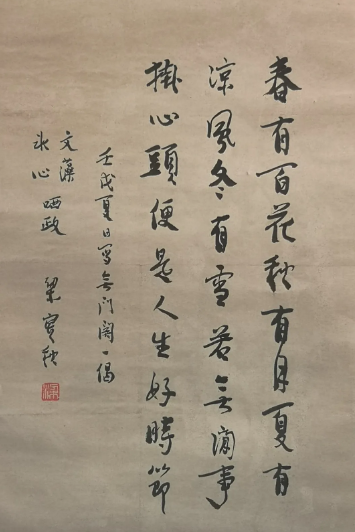 春有百花秋有月夏有
凉風冬有雪若無閒事
掛心頭便是人生好時節
壬戌夏日寫無門關一偈
文藻
冰心 哂政
梁實秋